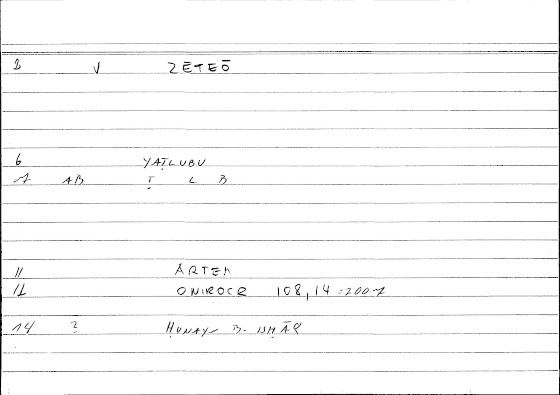 3 V ZĒTEŌ
6 YAṬLUBU
7 AB Ṭ L B
11 ARTEM
12 ONIROCR 108,14 =200-7
14 2 ḤUNAYN B. ISḤĀQ